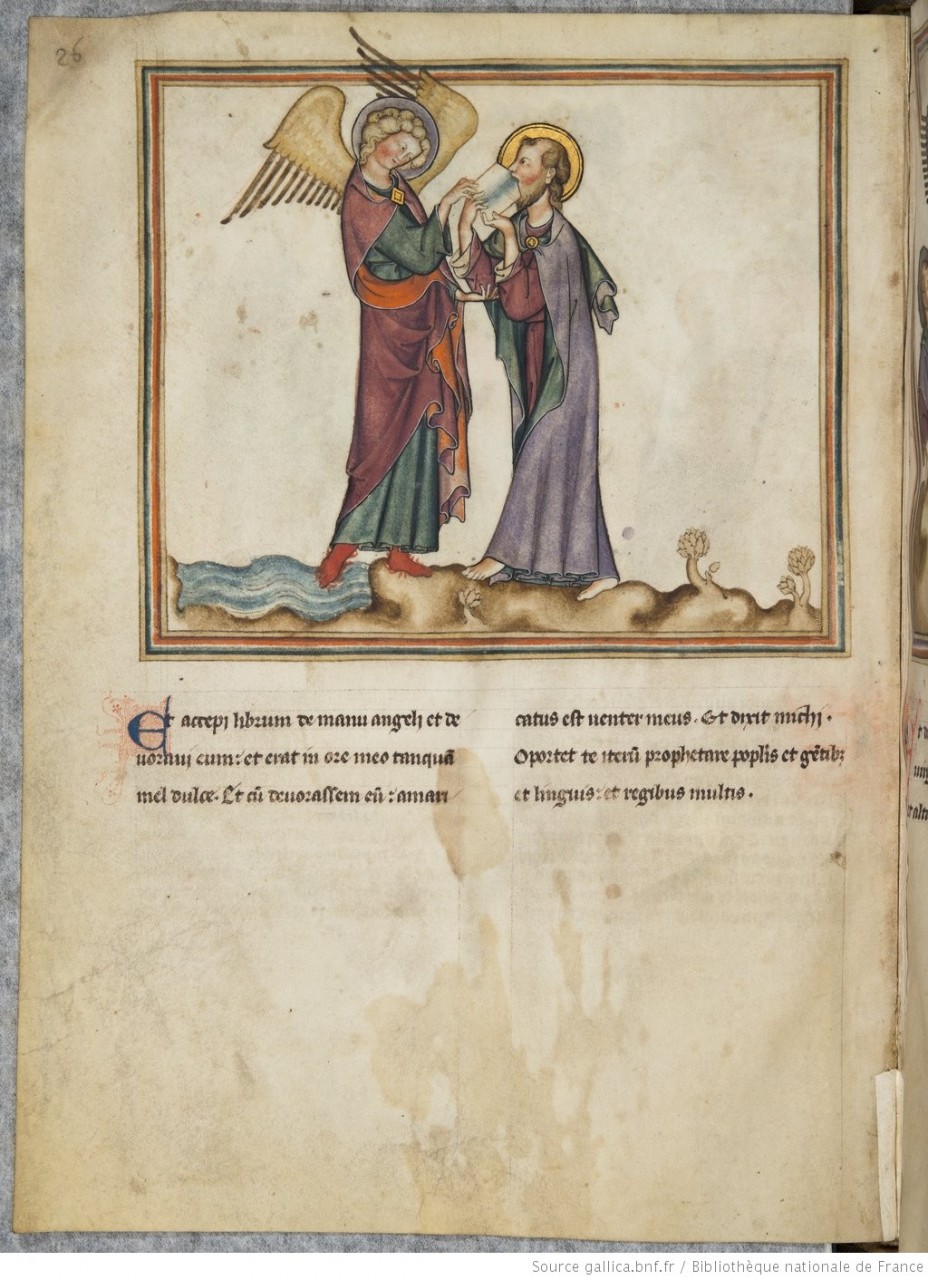 26
Et accepi librum de manu angeli et de
uoraui eum: et erat in ore meo tanquā
mel dulce. Et cū deuorassem eū: amari
catus est uenter meus. Et dixit michi.
Oportet te iterū prophetare poplis et gētibꝫ
et linguis: et regibus multis.
Source gallica.bnf.fr / Bibliothèque nationale de France